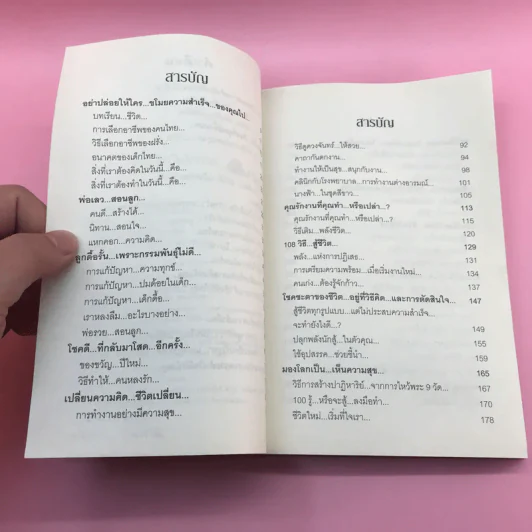 สารบัญ
อย่าปล่อยให้ใคร...ขโมยความสำเร็จ...ของคุณไป...
บทเรียน...ชีวิต...
การเลือกอาชีพของคนไทย...
วิธีเลือกอาชีพของฝรั่ง...
อนาคตของเด็กไทย...
สิ่งที่เราต้องคิดในวันนี้...คือ...
สิ่งที่เราต้องทำในวันนี้...คือ...
พ่อเลว...สอนลูก...
คนดี...สร้างได้...
นิทาน...สอนใจ...
แหกคอก...ความคิด...
ลูกดื้อรั้น...เพราะกรรมพันธุ์ไม่ดี...
การแก้ปัญหา...ความทุกข์...
การแก้ปัญหา...ปมด้อยในเด็ก...
การแก้ปัญหา...เด็กดื้อ...
เราหลงลืม...อะไรบางอย่าง...
พ่อรวย...สอนลูก...
โชคดี...ที่กลับมาโสด...อีกครั้ง...
ของขวัญ...ปีใหม่...
วิธีทำให้...คนหลงรัก...
เปลี่ยนความคิด...ชีวิตเปลี่ยน...
การทำงานอย่างมีความสุข...
สารบัญ
วิธีดูดวงจันทร์...ให้สวย... 92
คาถากันตกงาน... 94
ทำงานให้เป็นสุข...สนุกกับงาน... 98
คลินิกกับโรงพยาบาล...การทำงานต่างอารมณ์... 101
นางฟ้า...ในชุดสีขาว... 107
คุณรักงานที่คุณทำ...หรือเปล่า...? 113
คุณรักงานที่คุณทำ...หรือเปล่า...? 115
วิธีเติม...พลังชีวิต... 120
108 วิธี...สู้ชีวิต... 129
พลัง...แห่งการปฏิเสธ... 131
การเตรียมความพร้อม...เมื่อเริ่มงานใหม่... 134
คนเก่ง...ต้องรู้จักก้าว... 137
โชคชะตาของชีวิต...อยู่ที่วิธีคิด...และการตัดสินใจ... 147
สู้ชีวิตทุกรูปแบบ...แต่ไม่ประสบความสำเร็จ...
จะทำยังไงดี...? 149
ปลุกพลังนักสู้...ในตัวคุณ... 155
ใช้อุปสรรค...ช่วยชี้นำ... 159
มองโลกเป็น...เห็นความสุข... 165
วิธีการสร้างปาฏิหาริย์...จากการไหว้พระ 9 วัด... 167
100 รู้...หรือจะสู้...ลงมือทำ... 170
ชีวิตใหม่...เริ่มที่ใจเรา... 178